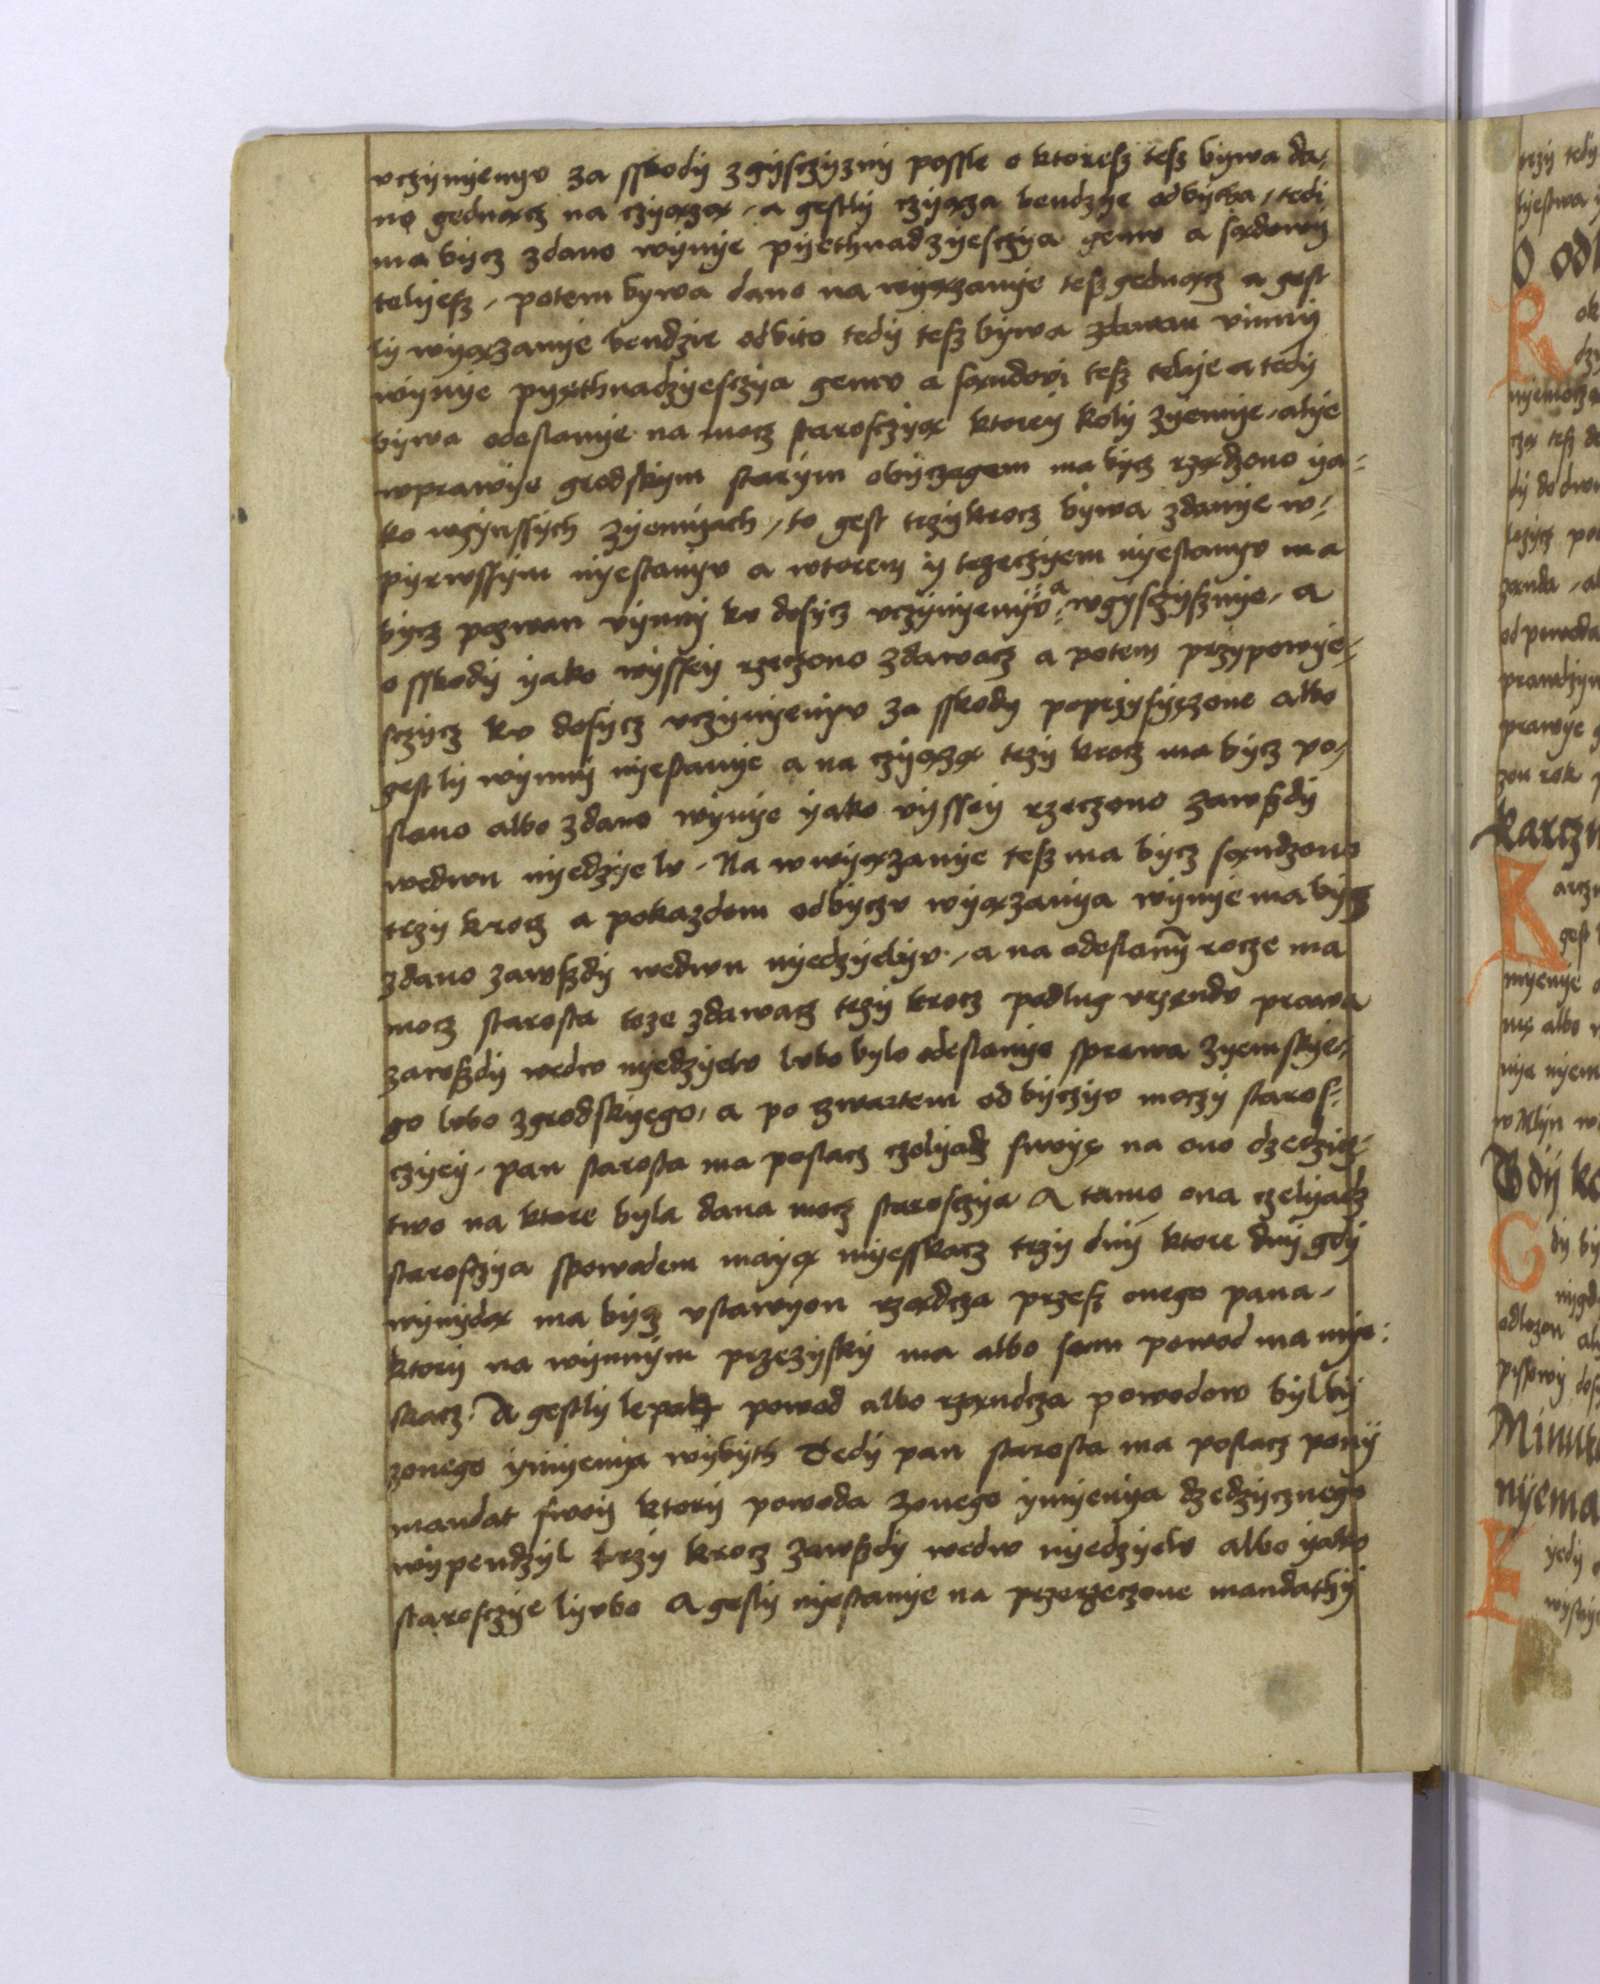 vczynyenyv za sskody zgysczyzny possle o ktoresz tesz bywa da-
nø gednøcz na czyøzø, a gestly czyøza bendzye odbytha, tedi
ma bycz zdano wynye pyethnadzyesczya gemv a sødowy
telyesz, potem bywa dano na wyøzanye tesz gednøcz a gest
ly wyøzanye bendzie odbito tedy tesz bywa zdawan vinny
wynye pyøthnadzyesczya gemv a søndovi tesz telyie a tedy
bywa odeslanye na mocz starosczyø ktorey koly zyemye, alye
wprawye grodskym starym obyczagem ma bycz rzødzono ya-
ko wgynssych zyemyach, to gest trzykrocz bywa zdanye w-
pyrwssym nyestanyv a wtorem y trzeczyem nyestanyv ma
bycz pozwan vynny kv dosycz vczynyenyv a wgysczysznye, a
o sskody yako wyssey rzeczono zdawacz a potem przypowye-
sczycz kv dosycz vczynyenyv za sskody poprzysyøzone albo
gest ly wynny nyestanye a na czyøzø trzy krocz ma bycz po-
slano albo zdano wynye yako vyssey rzeczono zawszdy
wedwu nyedzyelv. Na wwyøzanye tesz ma bycz søndzono
trzy krocz a pokazdem odbyczv wyøzanya wynye ma bycz
zdano zawszdy wedwu nyedzyelyv, a na odeslany rocze ma
mocz starosta toze zdawacz trzy krocz podlug vrzendv prawa
zawszdy wedw nyedzyelv lvbo bylo odeslanye sprawa zyemskye-
go lvbo zgrodskyego, a po czwartem odbyczyv moczy staros-
czyey, pan starosta ma poslacz czelyadz swoyø na ono dzedzicz-
two na ktore byla dana mocz starosczya A tamo ona czelyadz
starosczya spowodem mayø myesskacz trzy dny ktore dny gdy
wynydø ma bycz vstawyon rzødcza przesz onego pana,
ktory na wynnym przezysky ma albo sam powod ma mye-
skacz. A gestly lepak powod albo rzøndcza powodow byl by
zonego ymyenya wybyth Tedy pan starosta ma poslacz pony
mandat swoy ktory powoda zonego ymyenya dzedzycznego
wypendzyl trzy krocz zawszdy wedw nyedzyelv albo yako
starosczye lyvbo A gesly nyestanye na przerzeczone mandathy